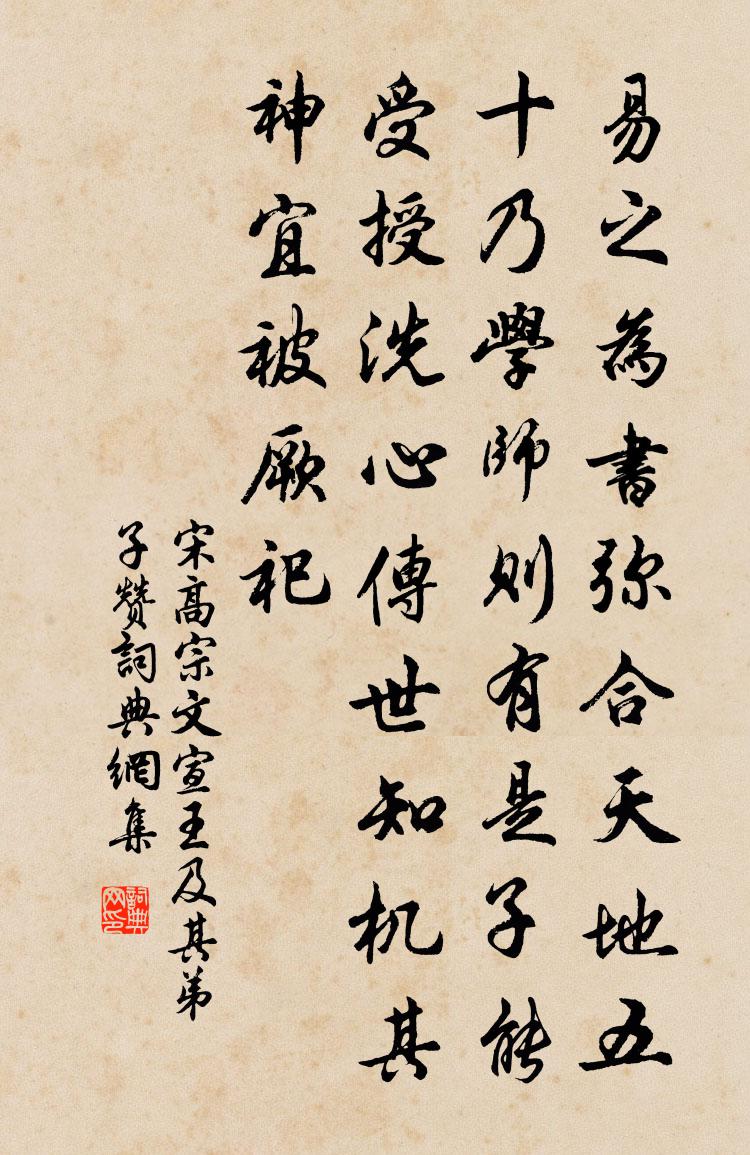 易之為書弥合天地五
十乃學師則有是子能
受授洗心傳世知机其
神宜被厥祀
宋高宗文宣王及其弟
子赞詞典網集
詞典网印